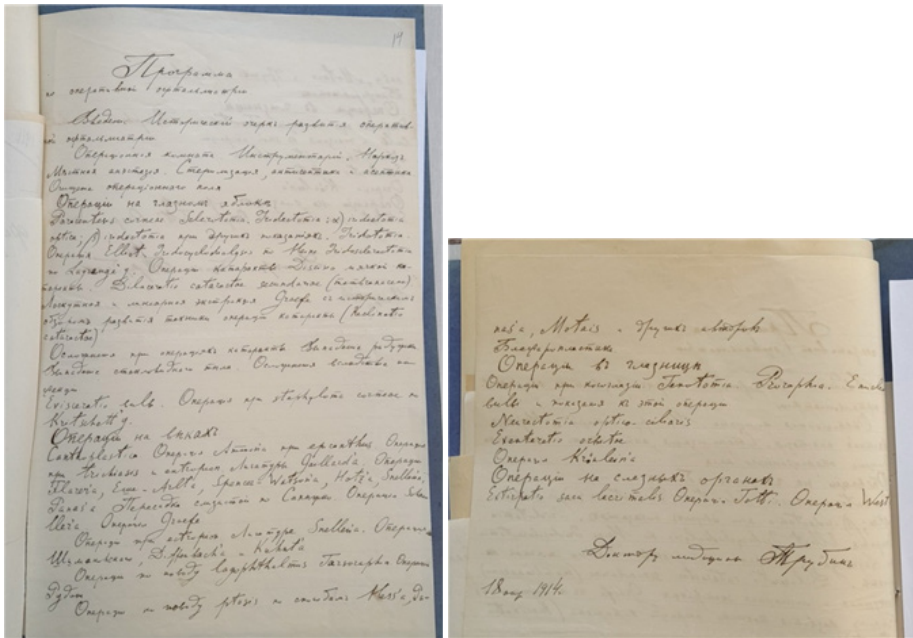 14
Программа
по оперативной офтальмiатрiи
Введенiе. Историческiй очеркъ развитiя оператив-
ной офтальмiатрiи
Операцiонная комната Инструментарiй. Наркозъ
Мѣстная анэстезiя. Стерилизацiя, антисептика и асептика
Очистка операцiоннаго поля
Операцiи на глазномъ яблокѣ
Paracentesis corneae Sclerotomia. Iridectomia: α) iridectomia
optica; β) iridectomia при другихъ показанiяхъ. Iridotomia.
Операцiя Elliot. Iridocyclodialysis по Iridosclerectomia
по Lagrange'у. Операцiи катаракты Discisio мягкой ка-
таракты. Dilaceratio cataractae secundariae
Лоскутная и линеарная экстракцiя Graefe съ историческимъ
обзоромъ развитiя техники операцiи катаракты (Reclinatio
cataractae)
Осложненiя при операцiяхъ катаракты. Выпаденiе радужки
Выпаденiе стекловиднаго тѣла. Осложненiя вслѣдствiе ин-
фекцiи
Evisceratio bulbi. Операцiя при staphyloma corneae по
Операцiи на вѣкахъ
Canthoplastica Операцiя при epicanthus Операцiи
при trichiasis и entropion Лигатуры Gaillard'a. Операцiи
Flarer'a, Spencer Watson'a, Hotz'a, Snellen'a,
Panas'a Пересадка слизистой по Сапѣжко Операцiя
Операцiя Graefe
Операцiи при ectropion Лигатура Snellen'a. Операцiи
Шимановскаго, Dieffenbach'a и Kuhnt'a
Операцiи по поводу lagophthalmus Tarsoraphia Операцiя
Операцiи по поводу ptosis по способамъ Hess'a, Pa-
nas'a, Motais и другихъ авторовъ
Блефаропластика
Операцiи въ глазницѣ
Операцiи при косоглазiи Tenotomia. Proraphia. Enucleatio
bulbi и показанiя къ этой операцiи
Neurectomia optico-ciliaris
Exenteratio orbitae
Операцiя Krönlein'a
Операцiи на слезныхъ органахъ
Extirpatio sacci lacrimalis Операцiя Toti. Операцiя West
Докторъ медицины Трубинъ
1914г.